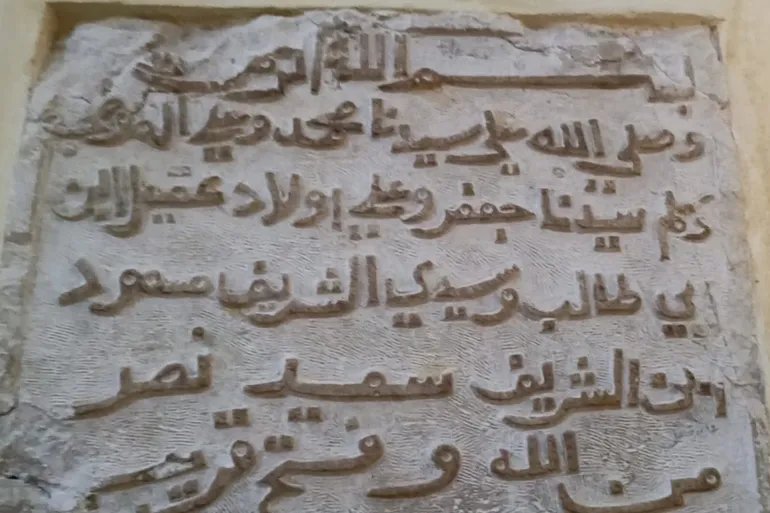 بسم الله الرحمن
وصلى الله على سيدنا محمد وعلى
سيدنا جعفر وعلى اولاد عقيل ابن
بي طالب وسيدي الشريف مسعود
بن الشريف سعيد نصر
من الله وفتح قريب